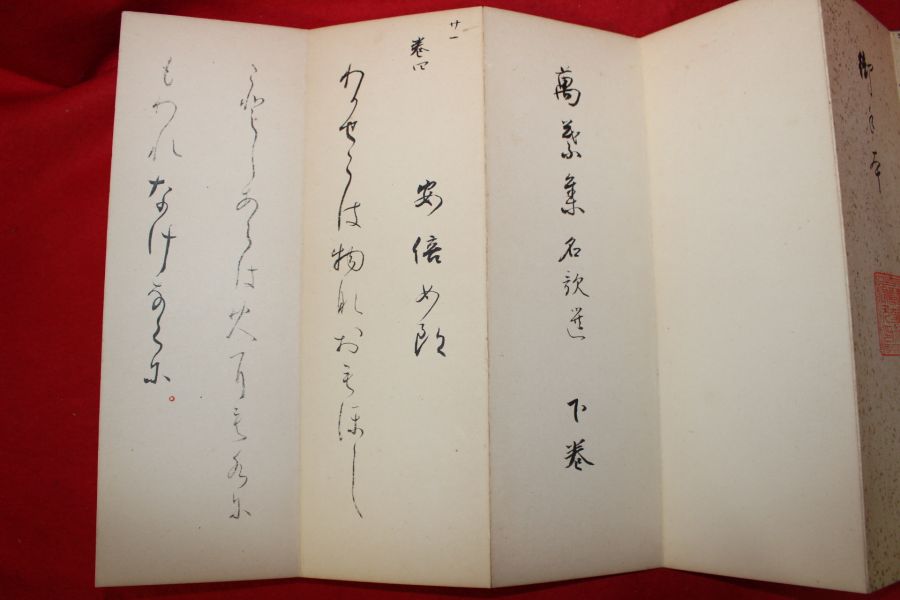 御手本
萬葉集名歌選 下巻
廿一
巻四
安倍女郎
わかせこは物なおもほし
ことしあらは火にも水に
もわれなけなくに